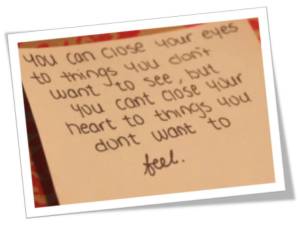 you can close your eyes
to things you don't
want to see, but
you cant close your
heart to things you
dont want to
feel.